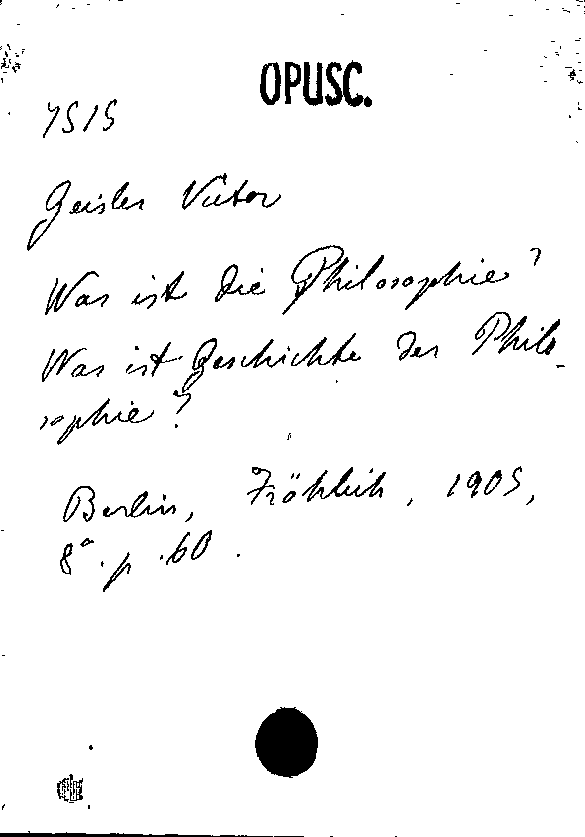 OPUSC.
7515
Geisler Victor
Was ist die Philosophie?
Was ist Geschichte der Philo-
sophie?
Berlin, Fröhlich, 1905,
8° p. 60.